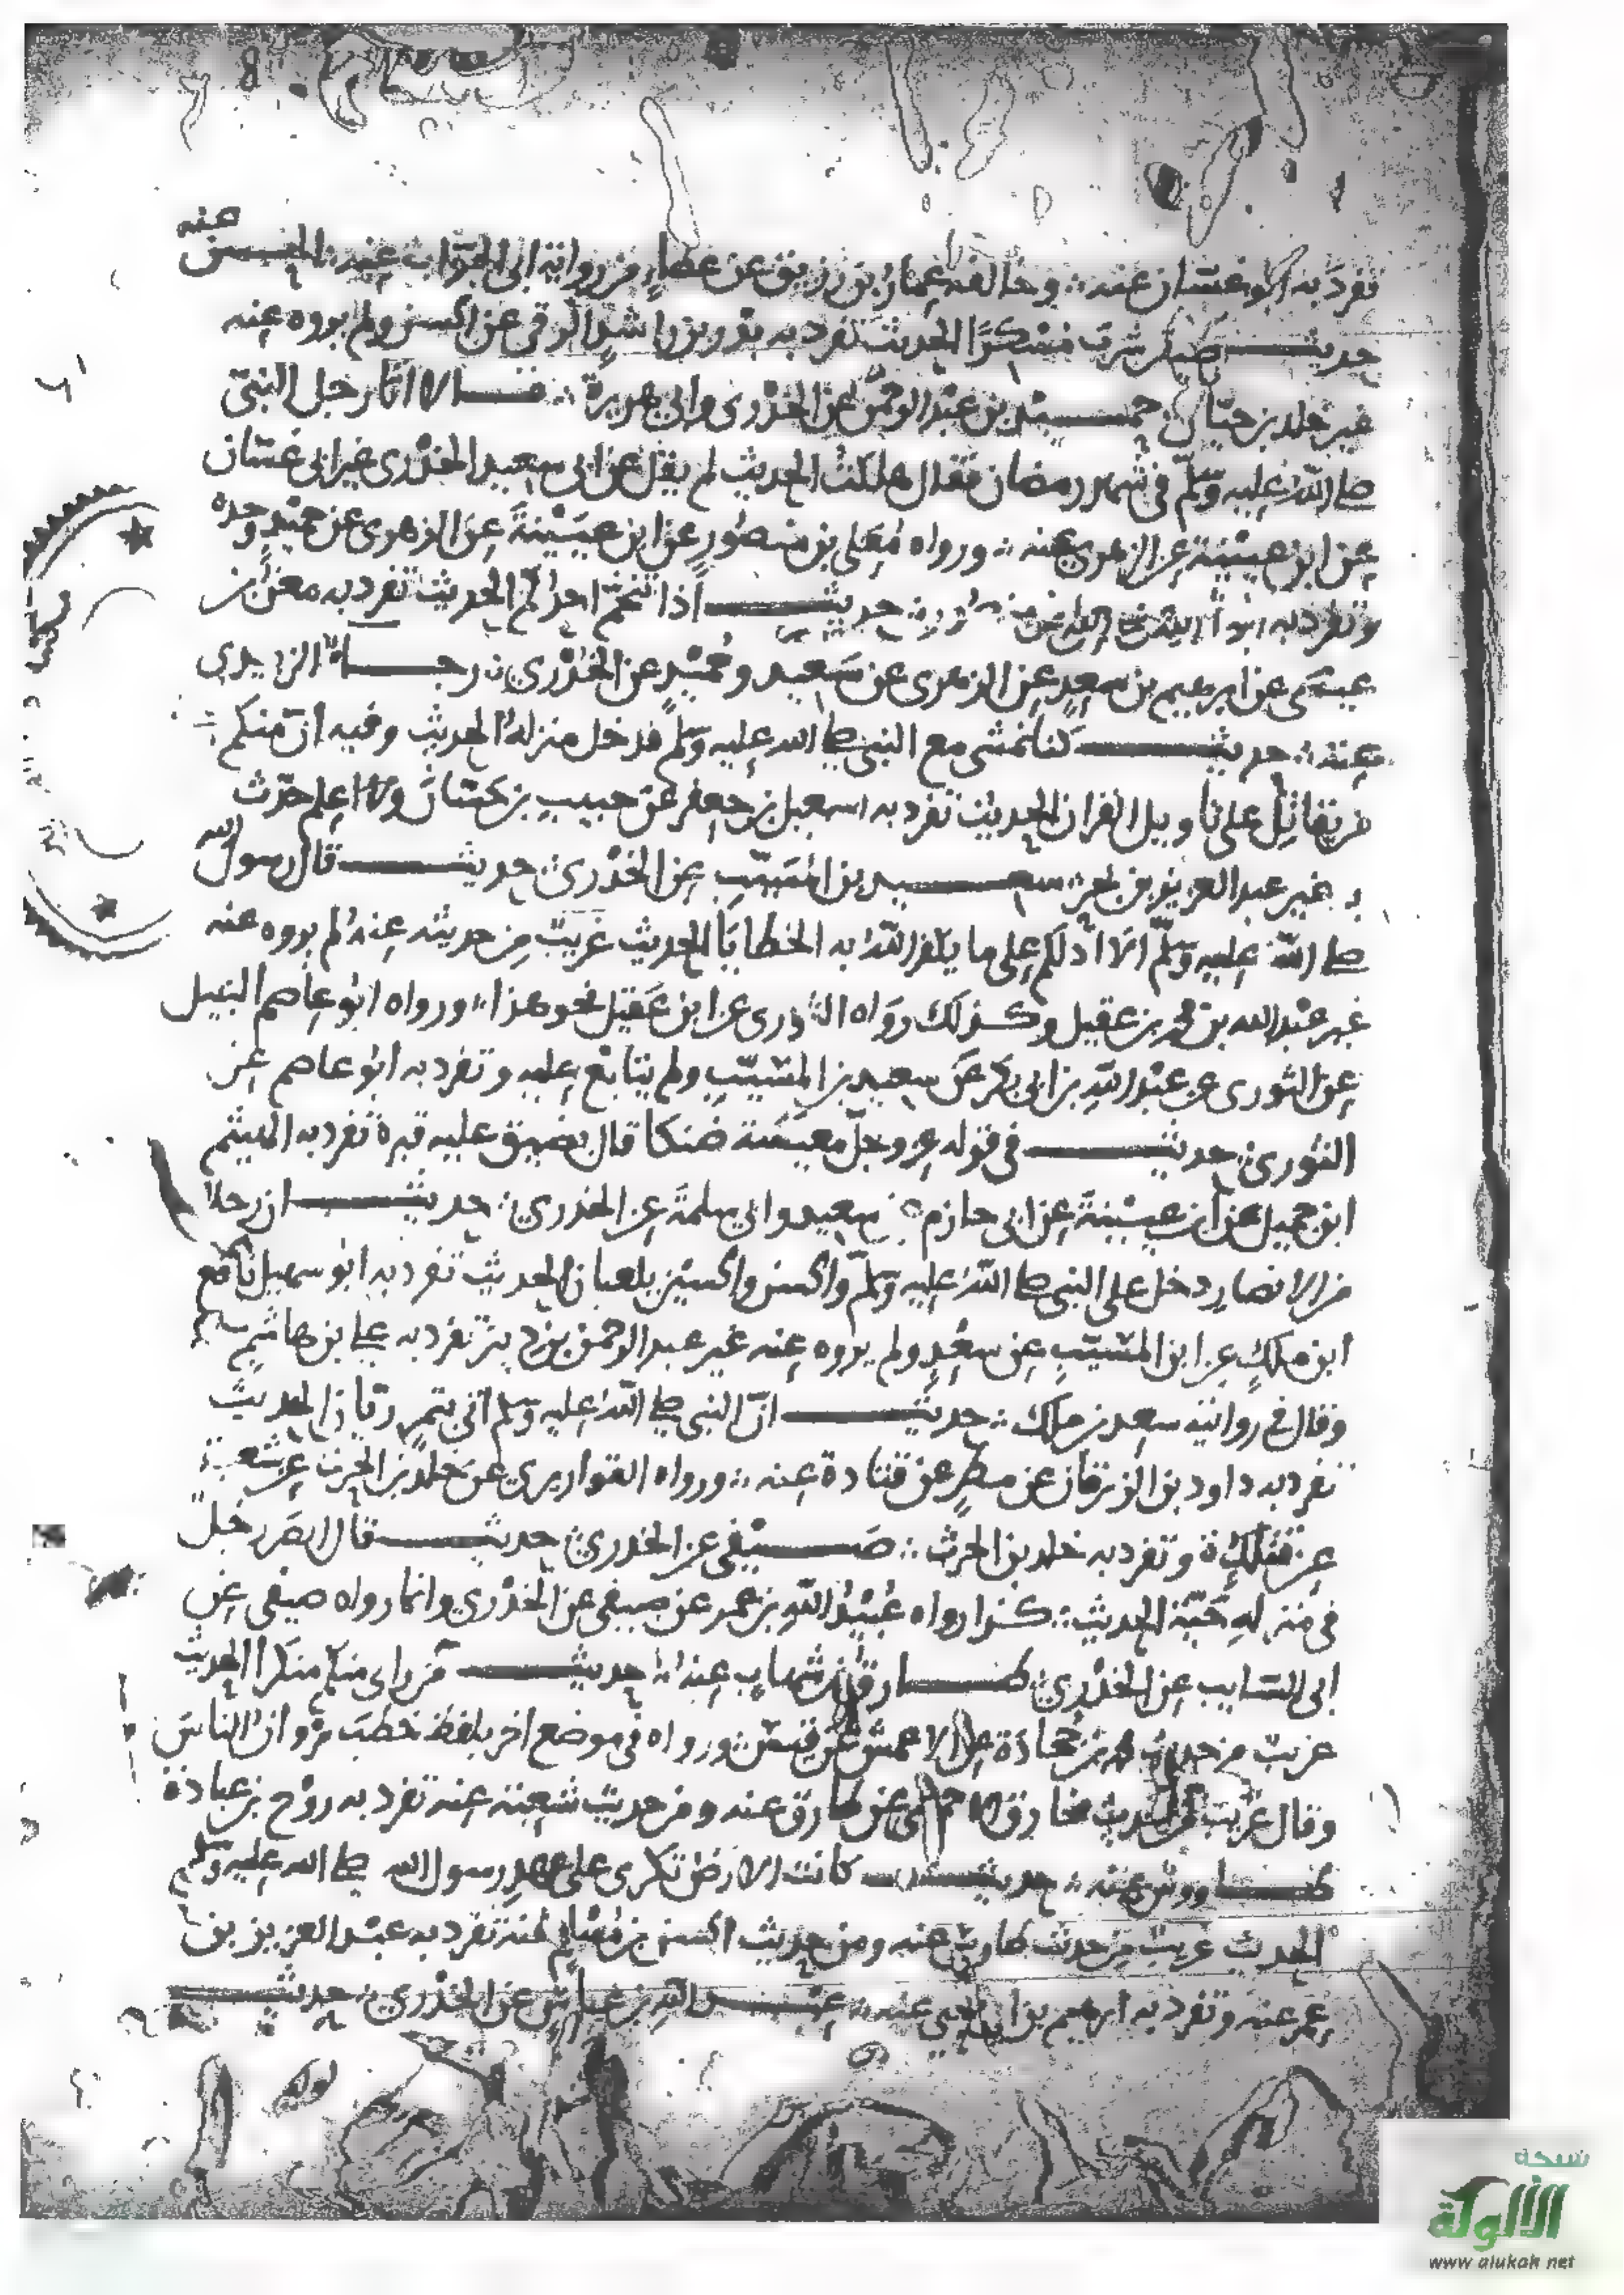 عنه
تفرد به ابو غسان عنه ؛ وخالفه عمار بن رزيق عن عطاء من رواية ابي الجواب عنه ؛ الحسن
حديث شرب مسكرا الحديث تفرد به بدر بن راشد الرقي عن الحسن ولم يروه عنه
غير خلد بن حيان ؛ حميد بن عبد الرحمن عن الخدري وابي هريرة ؛ قالا اتا رجل النبي
صلى الله عليه وسلم في شهر رمضان فقال هلكت الحديث لم يقل عن ابي سعيد الخدري غير ابي غسان
عن ابن عيينة عن الزهري عنه ؛ ورواه معلى بن منصور عن ابن عيينة عن الزهري عن حميد وحده
وتفرد به حديث اذا تنخم احدكم الحديث تفرد به معن بن
عيسى عن ابرهيم بن سعد عن الزهري عن سعيد وحميد عن الخدري ؛ رجاء الزبيدي
عنه ؛ حديث كنا نمشي مع النبي صلى الله عليه وسلم فدخل منزله الحديث وفيه ان منكم
من يقاتل على تاويل القران الحديث تفرد به اسمعيل بن جعفر عن حبيب بن حسان ولا اعلم حدث
به غير عبد العزيز بن بحر ؛ سعيد بن المسيب عن الخدري ؛ حديث قال رسول الله
صلى الله عليه وسلم الا ادلكم على ما يكفر الله به الخطايا الحديث غريب من حديثه عنه لم يروه عنه
غير عبد الله بن محمد بن عقيل وكذلك رواه الثوري عن ابن عقيل نحو هذا ؛ ورواه ابو عاصم النبيل
عن الثوري عن عبد الله بن ابي بكر عن سعيد بن المسيب ولم يتابع عليه وتفرد به ابو عاصم عن
الثوري ؛ حديث في قوله عز وجل معيشة ضنكا قال يضيق عليه قبره تفرد به الهيثم
ابن جميل عن ابن عيينة عن ابي حازم سعيد وابي سلمة عن الخدري ؛ حديث ان رجلا
من الانصار دخل على النبي صلى الله عليه وسلم والحسن والحسين يلعبان الحديث تفرد به ابو سهيل نافع
ابن ملك عن ابن المسيب عن سعد ولم يروه عنه غير عبد الرحمن بن تفرد به علي بن هاشم
وقال في روايته سعد بن ملك ؛ حديث ان النبي صلى الله عليه وسلم اتي بتمر ريان الحديث
تفرد به داود بن الزبرقان عن مطر عن قتادة عنه ؛ ورواه القواريري عن خلد بن الحرث عن شعبة
عن قتادة وتفرد به خلد بن الحرث ؛ صيفي عن الخدري ؛ حديث قال ابصر رجل
في منزله حية الحديث ؛ كذا رواه عبيد الله بن عمر عن صيفي عن الخدري وانما رواه صيفي عن
ابي السايب عن الخدري ؛ طارق بن شهاب عنه ؛ حديث من راى منكم منكرا الحديث
غريب من حديث محمد بن جحادة عن الاعمش عن قيس ؛ ورواه في موضع اخر بلفظ خطب مروان الناس
وقال غريب من حديث مخارق الاحمسي عن طارق عنه ومن حديث شعبة عنه تفرد به روح بن عبادة
طاووس عنه ؛ حديث كانت الارض تكرى على عهد رسول الله صلى الله عليه وسلم
الحديث غريب من حديث طاووس عنه ومن حديث الحسن بن مسلم عنه تفرد به عبد العزيز بن
عمر عنه وتفرد به ابرهيم بن ابي يحيى عنه ؛ عبد الله بن عباس عن الخدري ؛ حديث
شبكة
الألوكة
www.alukah.net